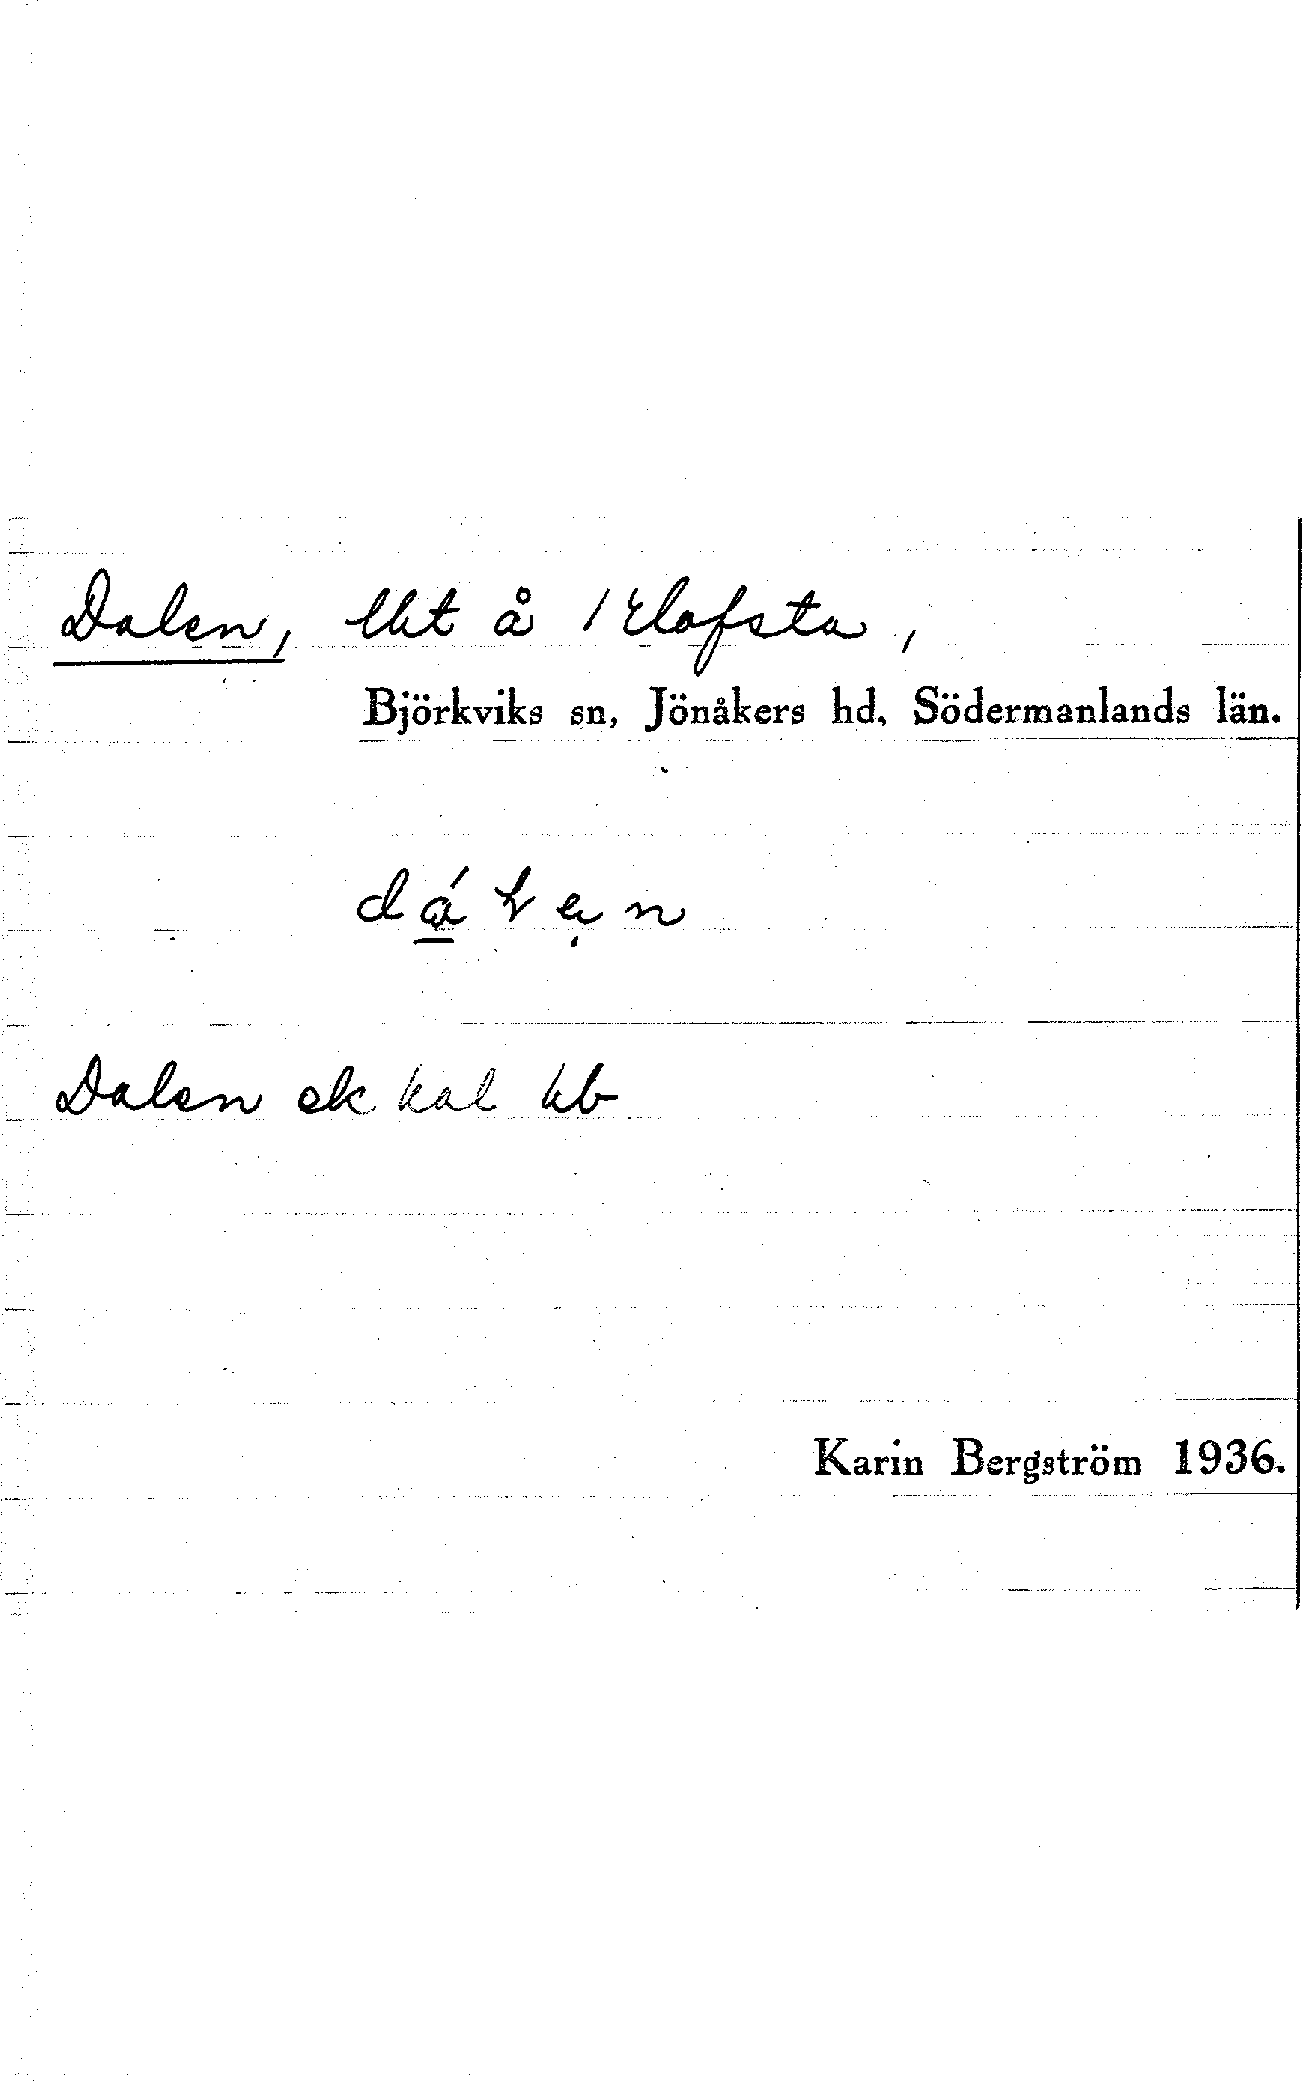 Dalen, lht å 1 Elofsta,
Björkviks sn, Jönåkers hd, Södermanlands län.
Dalen ek kal kb
Karin Bergström 1936.